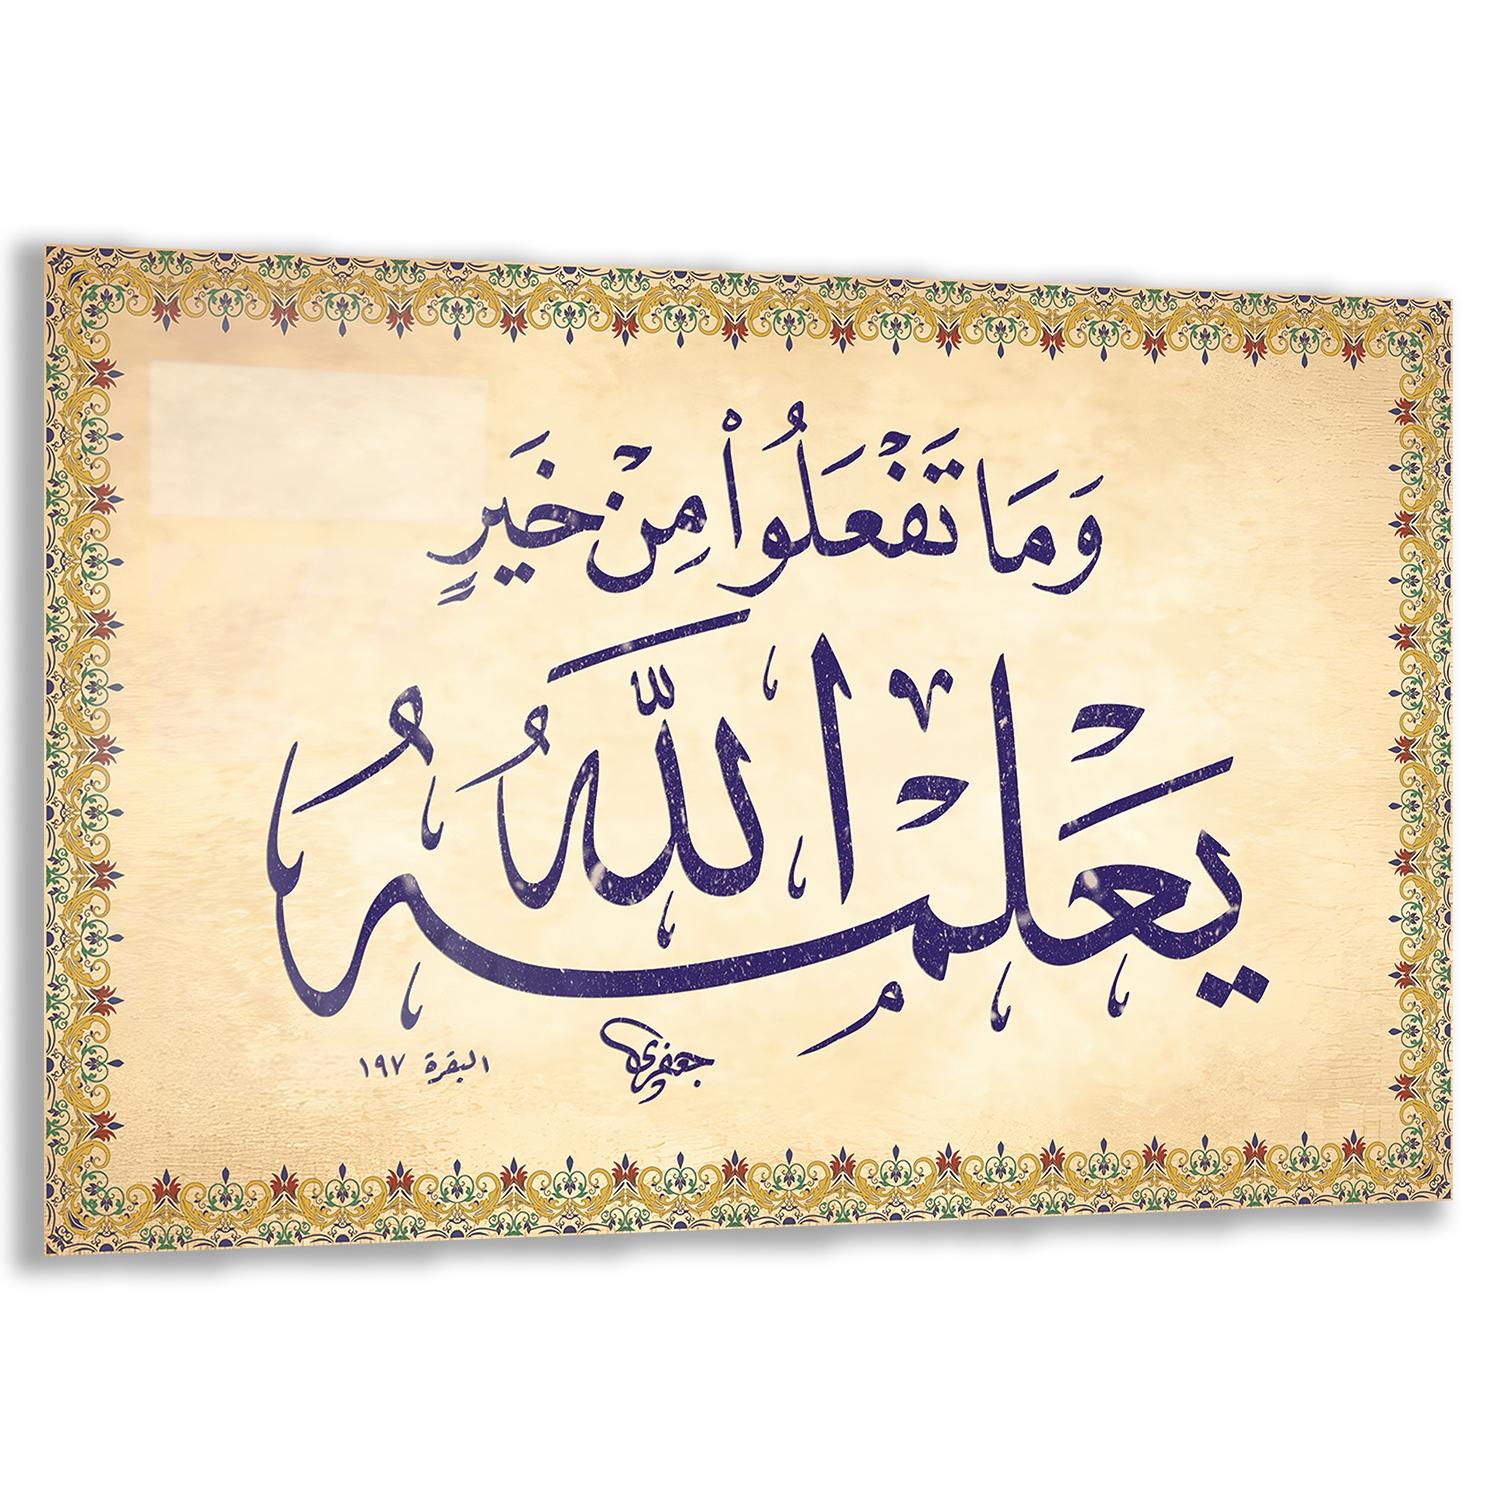 وَمَا تَفْعَلُواْ مِنْ خَيْرٍ
يَعْلَمْهُ اللَّهُ
جعفري
البقرة ١٩٧